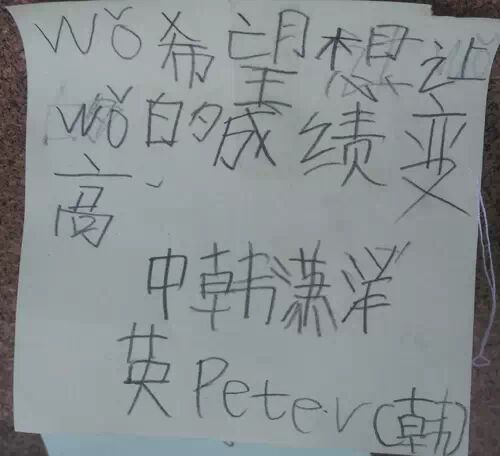 wǒ希望想让
wǒ的成绩变
高.
中韩潇洋
英Peter(韩)